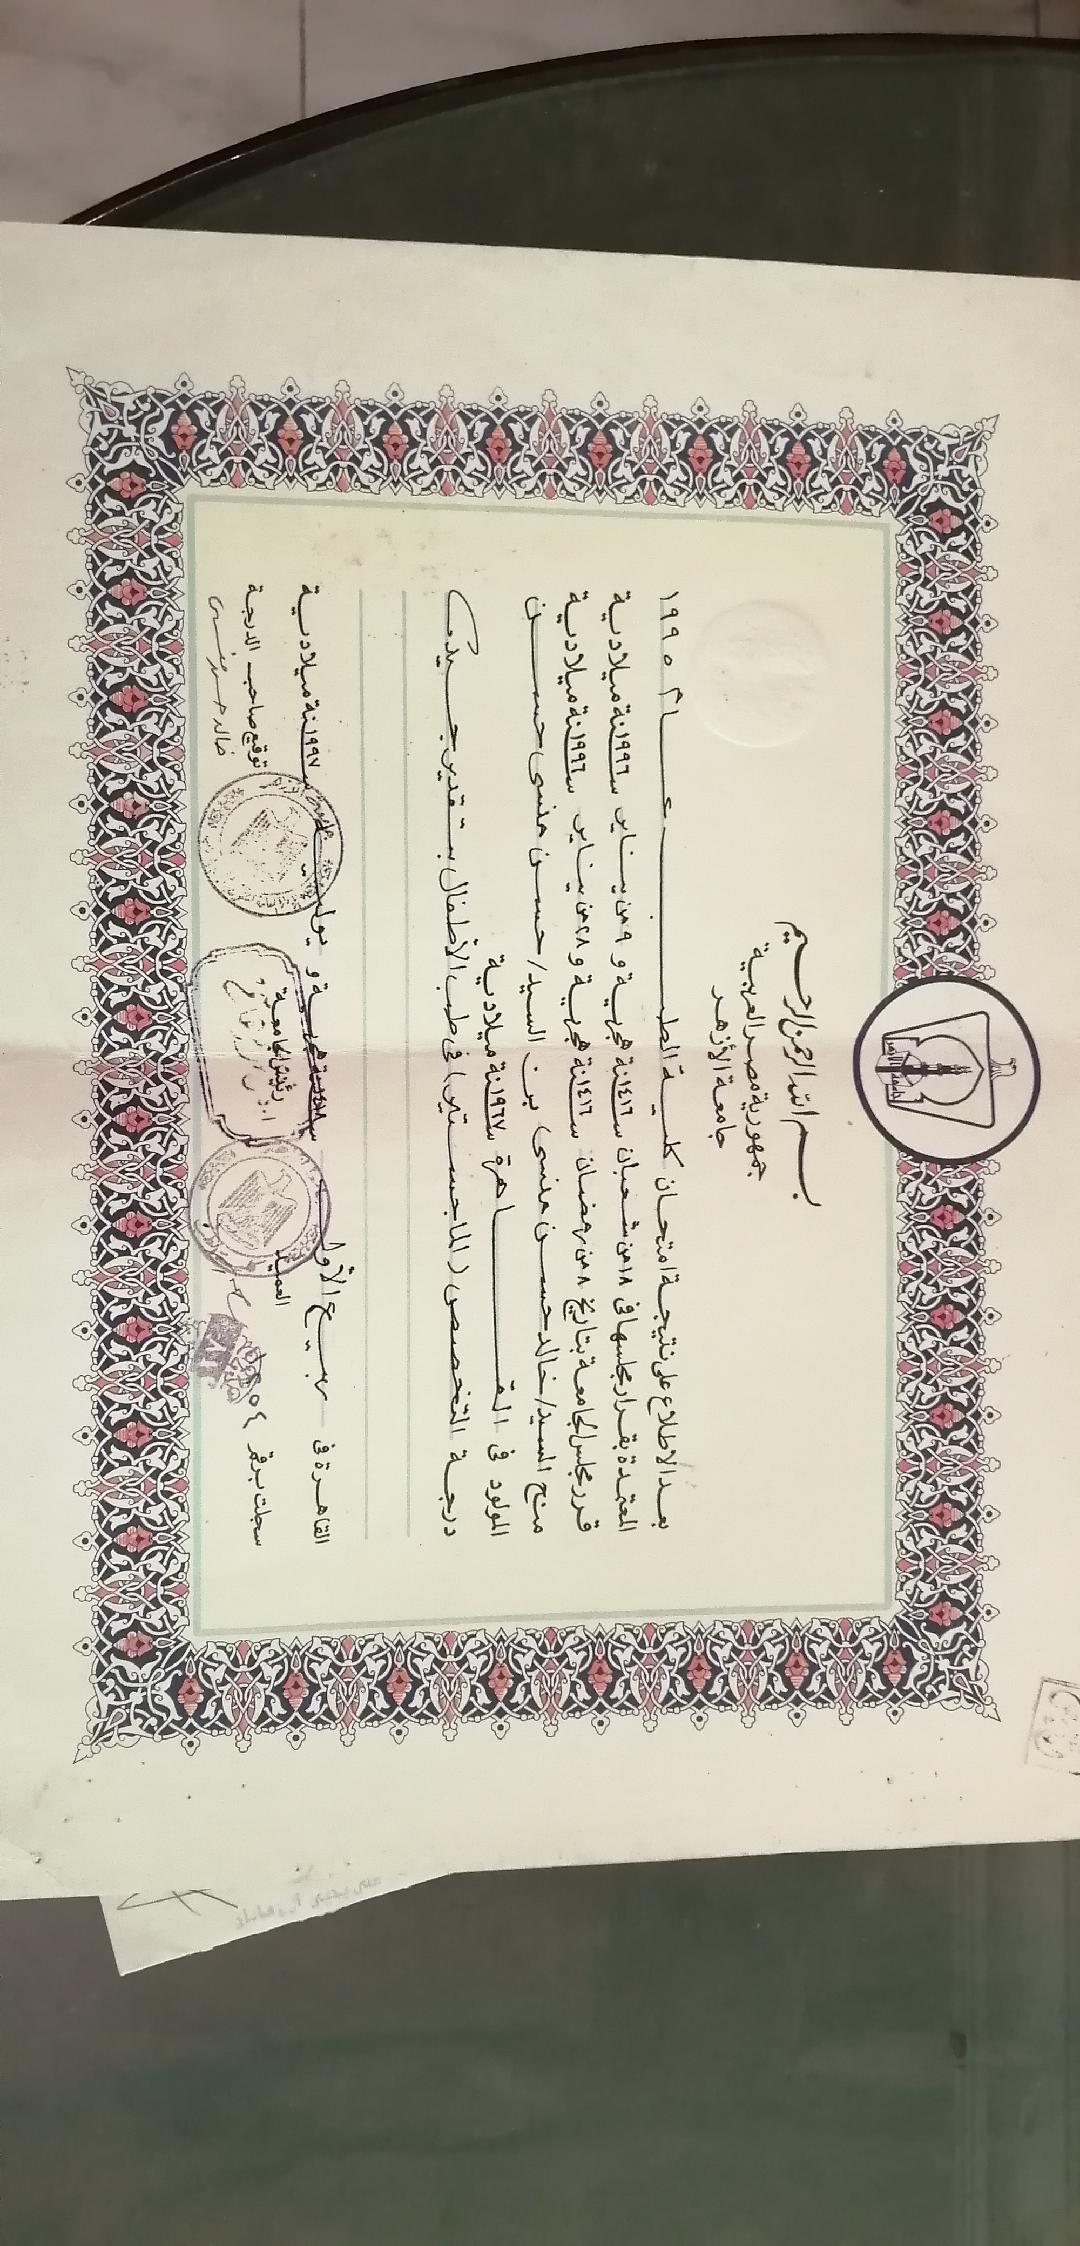 بسم الله الرحمن الرحيم
جمهورية مصر العربية
جامعة الأزهر
بعد الاطلاع على نتيجة امتحان كلية الطب عام ١٩٩٥
المعتمدة بقرار مجلسها في ١٨ من شعبان سنة ١٤١٦ هجرية و ٩ من يناير سنة ١٩٩٦ ميلادية
قرر مجلس الجامعة بتاريخ ٨ من رمضان سنة ١٤١٦ هجرية و ٢٨ من يناير سنة ١٩٩٦ ميلادية
منح السيد/ خالد حسن منسى بن السيد/ حسن منسى حسن
المولود فى القاهرة سنة ١٩٦٧ ميلادية
درجة التخصص (الماجستير) فى طب الأطفال بتقدير جيد
القاهرة فى ربيع الأول سنة ١٤١٨ هجرية و يوليه سنة ١٩٩٧ ميلادية
العميد
رئيس الجامعة
توقيع صاحب الدرجة
سجلت برقم
خالد حسن منسى